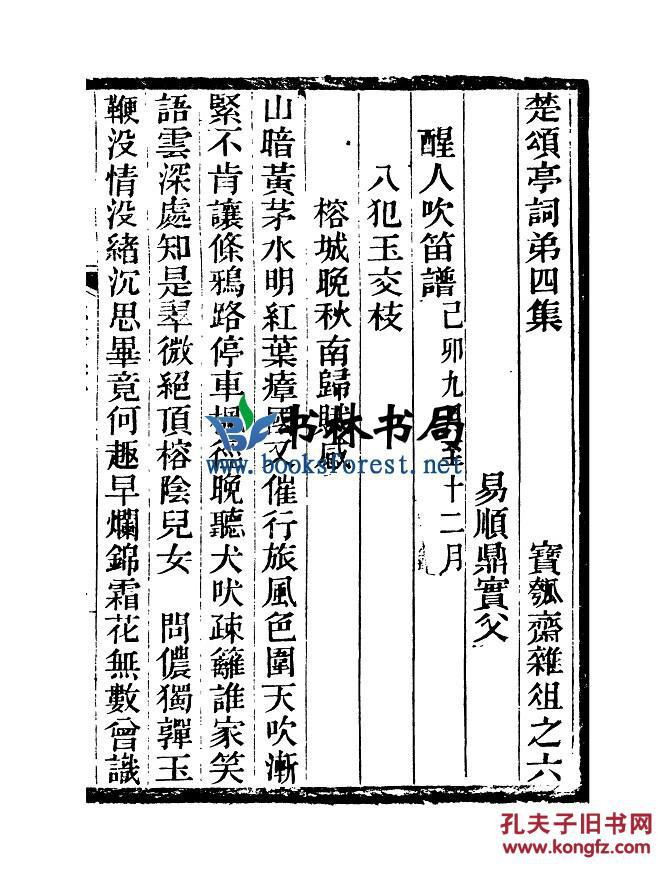 楚頌亭詞弟四集　寶瓠齋雜俎之六
易順鼎實父
醒人吹笛譜　己卯九月至十二月
八犯玉交枝
榕城晚秋南歸賦感
山暗黃茅水明紅葉瘴雨又催行旅風色圍天吹漸
緊不肯讓條鴉路停車楓徑晚聽犬吠疎籬誰家笑
語雲深處知是翠微絕頂榕陰兒女　問儂獨嚲玉
鞭没情没緒沉思畢竟何趣早爛錦霜花無數曾識
书林书局
www.booksforest.net
孔夫子旧书网
kongfz.com